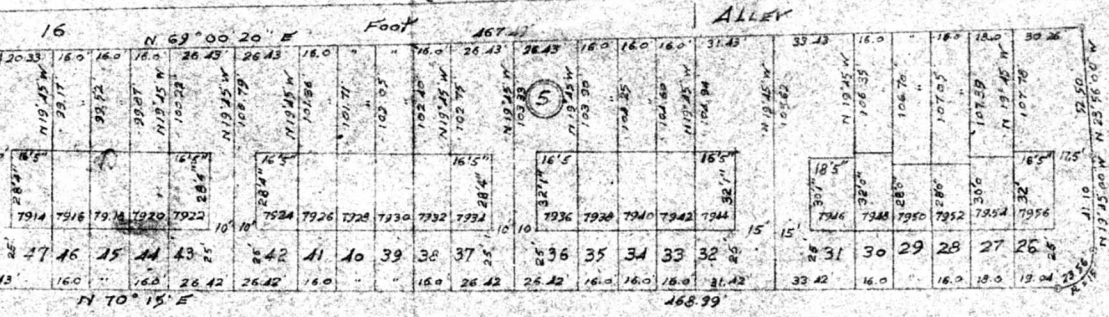 16 Foot ALLEY
N 69° 00' 20" E 467.
20.33 16.0 16.0 16.0 26.43 26.43 16.0 " " 16.0 26.43 26.43 16.0 16.0 16.0 31.43 33.43 16.0 " 16.0 18.0 30.26
N 19°45' W 99.17 99.52 99.87 N 19°45' W 100.22 N 19°45' W 100.79 N 19°45' W 101.36 101.71 102.05 102.40 N 19°45' W 102.75 N 19°45' W 103.33 N 19°45' W 103.90 104.25 104.60 N 19°45' W 104.94 N 19°45' W 105.62 N 19°45' W 106.35 106.70 107.05 107.39 N 19°45' W 107.78 52.50 N 23°56'00" W
5
16'5" 16'5" 16'5" 16'5" 16'5 16'5" 18'5" 16'5" 17.5'
28'4" 28'4" 28'4" 28'4" 32'1" 32'1" 30'1" 32'0" 28'0" 28'0" 30'0 32' 41.10 N 19°45'00" W
7914 7916 7918 7920 7922 7924 7926 7928 7930 7932 7934 7936 7938 7940 7942 7944 7946 7948 7950 7952 7954 7956
10' 10' 10' 10 15' 15'
25' 47 46 45 44 43 25' 25' 42 41 40 39 38 37 25' 25' 36 35 34 33 32 25' 25' 31 30 29 28 27 26 25'
16.0 " 16.0 26.42 26.42 16.0 " " 16.0 26.42 26.42 16.0 16.0 16.0 31.42 33.42 16.0 " 16.0 18.0 19.04 23.56
R=15
N 70° 15' E 468.99'